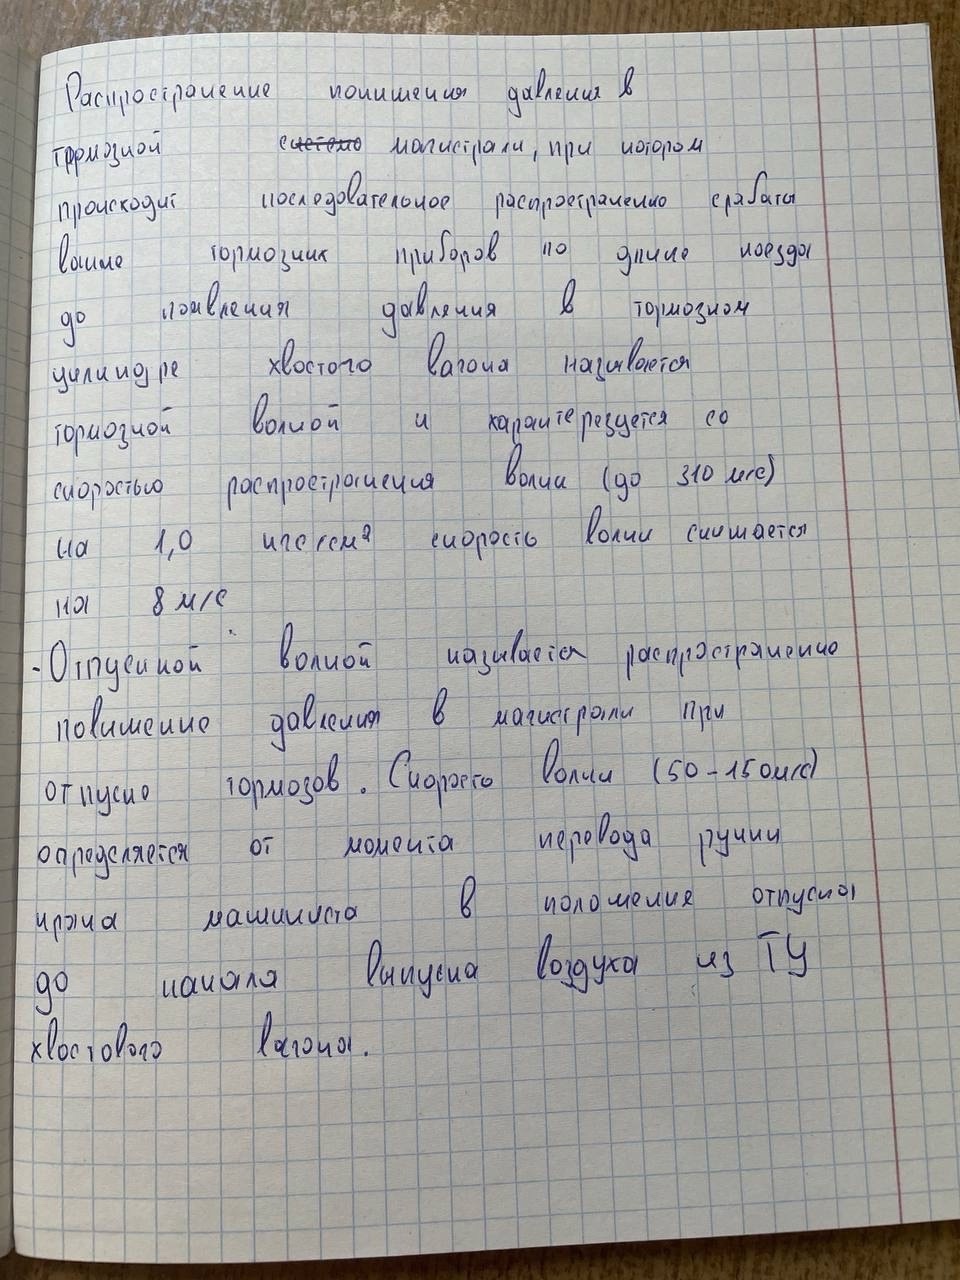 Распространение понишения давления в
тормозной системо магистрали, при котором
происходит последовательное распространению срабаты
вание тормозних приборов по длине поезда
до появления давления в тормозном
цилиндре хвостого вагона називается
тормозной волной и характерезуется со
скоростью распространения волни (до 310 м/с)
на 1,0 кгс/см² скорость волни снишается
на 8 м/с
- Отпускной волной називается распространению
повишение давления в магистрали при
отпуско тормозов. Скорость волни (50-150м/с)
определяется от момента перевода ручки
крана машиниста в положение отпуска
до начала выпуска воздуха из ТЦ
хвостового вагона.